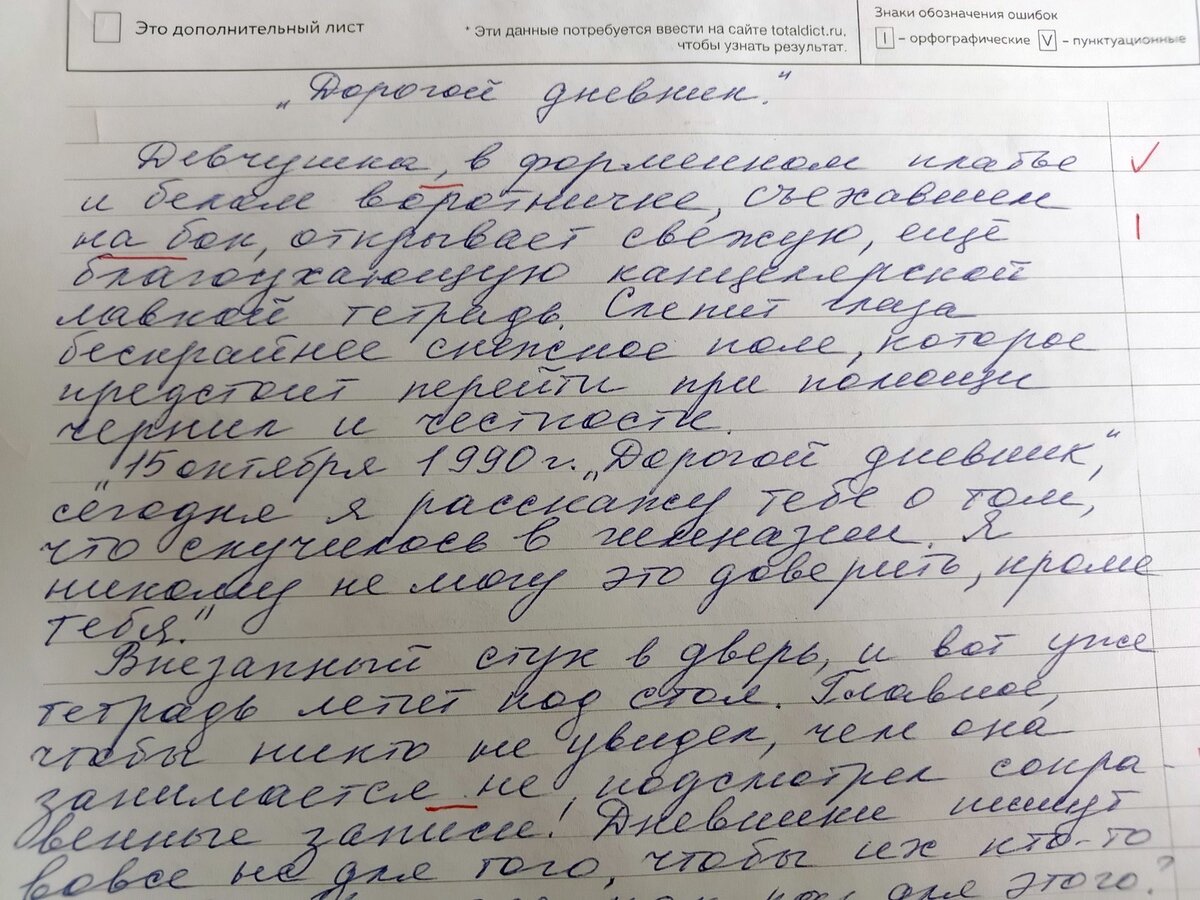 Это дополнительный лист
* Эти данные потребуется ввести на сайте totaldict.ru,
чтобы узнать результат.
Знаки обозначения ошибок
| – орфографические V – пунктуационные
„Дорогой дневник.“
Девчушка, в форменном платье
и белом воротничке, съехавшем
на бок, открывает свежую, ещё
благоухающую канцелярской
лавкой тетрадь. Слепит глаза
бескрайнее снежное поле, которое
предстоит перейти при помощи
чернил и честности.
„15 октября 1990 г. „Дорогой дневник“,
сегодня я расскажу тебе о том,
что случилось в гимназии. Я
никому не могу это доверить, кроме
тебя.“
Внезапный стук в дверь, и вот уже
тетрадь летит под стол. Главное,
чтобы никто не увидел, чем она
занимается не подсмотрел сокра-
венные записи! Дневники пишут
вовсе не для того, чтобы их кто-то
для этого?